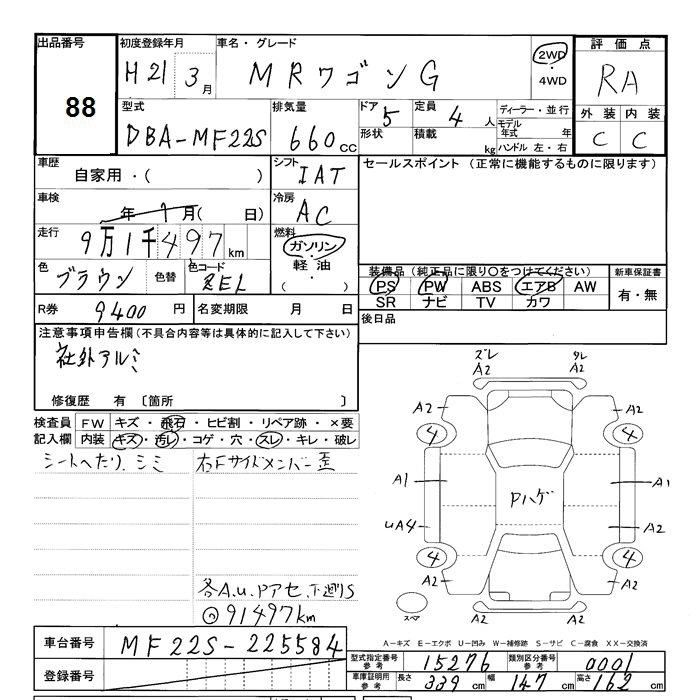 出品番号 初度登録年月 車名・グレード 評価点
88 H21 3月 MRワゴンG 2WD ・ 4WD RA
外装 内装
C C
型式 排気量 ドア 定員 ディーラー・並行
DBA-MF22S 660cc 5 4人 モデル年式 年
形状 積載 kg ハンドル 左・右
車歴 シフト セールスポイント (正常に機能するものに限ります)
自家用・( ) IAT
車検 年 1月( 日) 冷房 AC
走行 9万1千497km 燃料 ガソリン・軽油・( )
色 ブラウン 色替 色コード ZEL
装備品(純正品に限り○をつけてください) 新車保証書
PS PW ABS エアB AW 有・無
SR ナビ TV カワ
R券 9400円 名変期限 月 日
後日品
注意事項申告欄(不具合内容等は具体的に記入して下さい)
社外アルミ
修復歴 有 〔箇所 〕
検査員記入欄 FW キズ・飛石・ヒビ割・リペア跡・×要
内装 キズ・汚レ・コゲ・穴・スレ・キレ・破レ
シートヘたり、シミ 右Fサイドメンバー歪
各A.u.Pアセ、下廻りS
◎91497km
ズレ A2 タレ A2
A2 A2
4 4
A1 Pハゲ A1
uA4 A2
4 4
A2 A2
スペア A2 A2
A-キズ E-エクボ U-凹み W-補修跡 S-サビ C-腐食 XX-交換済
車台番号 MF22S-225584
登録番号
型式指定番号 参考 15276 類別区分番号 参考 0001
車庫証明用 参考 長さ 339cm 幅 147cm 高さ 162cm